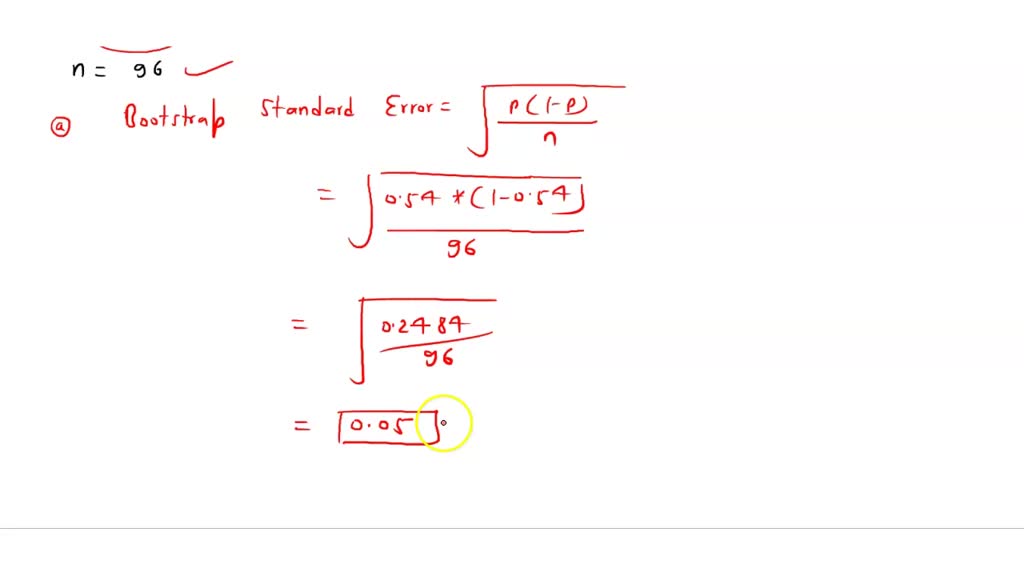 n = 96 ✓
ⓐ Bootstrap Standard Error = √(p(1-p)/n)
= √(0.54 * (1-0.54)/96)
= √(0.2484/96)
= 0.05